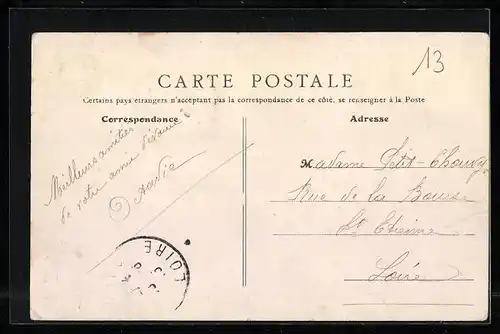 13
CARTE POSTALE
Certains pays étrangers n'acceptant pas la correspondance de ce côté, se renseigner à la Poste
Correspondance
Adresse
Meilleurs amitiés
de votre amie dévouée
Madame Petit-Chouvy
Rue de la Bourse
St Etienne
Loire
LOIRE